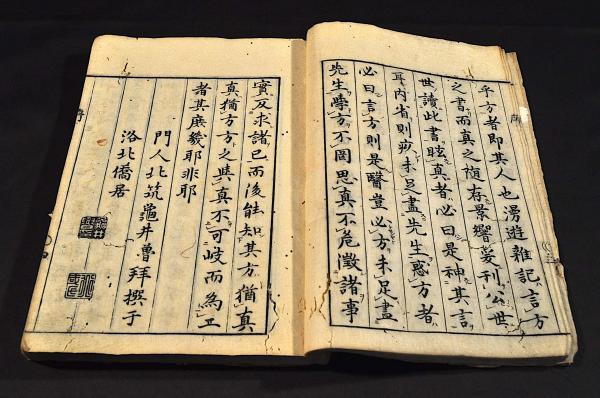 乎方者即其人也漫遊雜記言方
之書而真之随存景響爰刊公世
世讀此書眩真者必曰是神其言
耳内省則疚未足盡先生惡方者
必曰言方則是醫豈必方未足盡
先生學方不罔思真不危徵諸事
實反求諸己而後能知其方猶真
真猶方方之與真不可岐而為二
者其庶幾耶非耶
門人北筑龜井魯拜撰于
洛北僑居